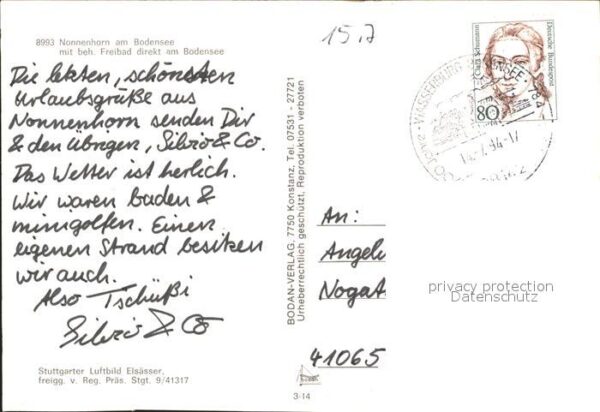 8993 Nonnenhorn am Bodensee
mit beh. Freibad direkt am Bodensee
Die letzten, schönsten
Urlaubsgrüße aus
Nonnenhorn senden Dir
& den Übrigen, Silvio & Co.
Das Wetter ist herlich.
Wir waren baden &
minigolfen. Einen
eigenen Strand besitzen
wir auch.
Also Tschüßi
Silvio & Co
Stuttgarter Luftbild Elsässer,
freigg. v. Reg. Präs. Stgt. 9/41317
BODAN-VERLAG, 7750 Konstanz, Tel. 07531 - 27721
Urheberrechtlich geschützt, Reproduktion verboten
3-14
15.7
Clara Schumann
Deutsche Bundespost
80
WASSERBURG
An:
Angel
Nogat
41065
privacy protection
Datenschutz